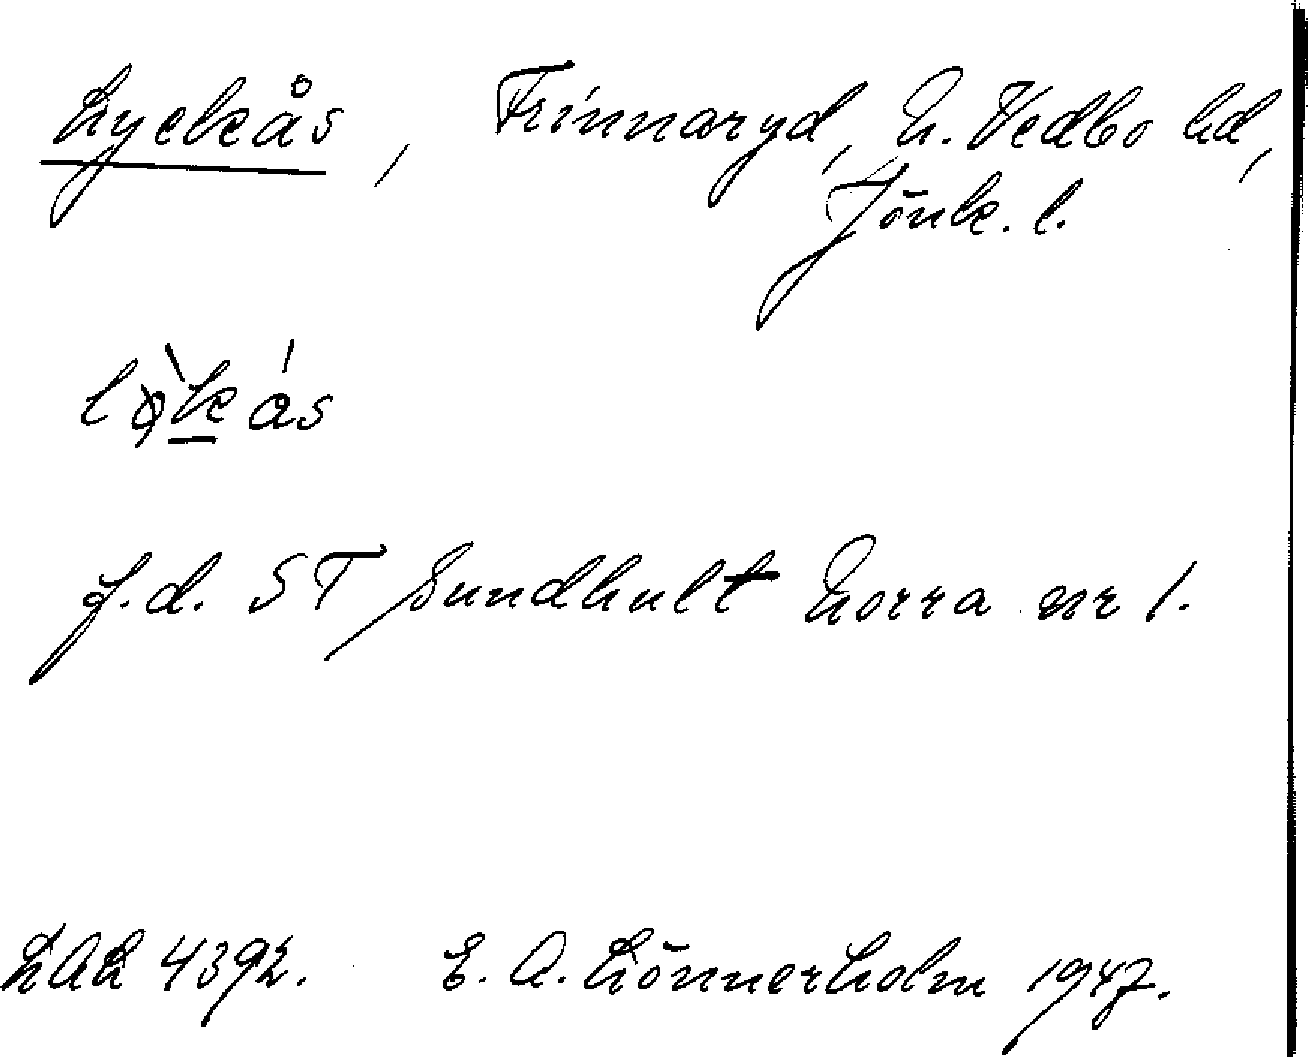 Lyckås, Frinnaryd, N. Vedbo hd,
Jönk. l.
lø̀kás
f.d. ST Sundhult Norra nr 1.
LAL 4392. E. A. Lönnerholm 1947.